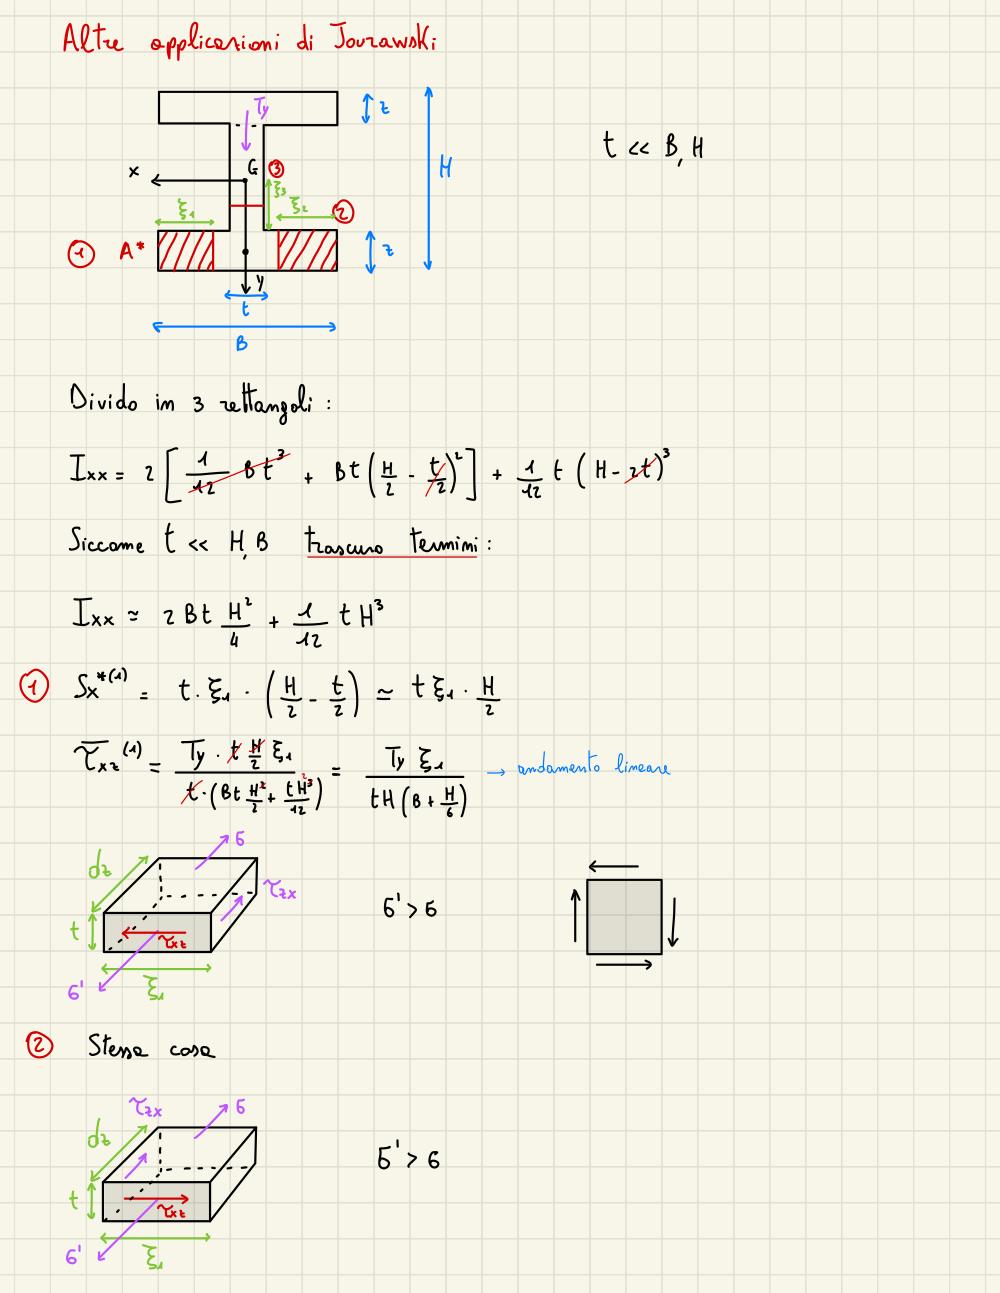 Altre applicazioni di Jourawski
Ty
z
t << B, H
H
x
G
③
ξ₃
ξ₁
ξ₂
②
① A*
z
y
t
B
Divido in 3 rettangoli :
Ixx = 2 [ 1/12 B t³ + B t ( H/2 - t/2 )² ] + 1/12 t ( H - 2t )³
Siccome t << H, B trascuro termini :
Ixx ≃ 2 B t H²/4 + 1/12 t H³
① Sx*⁽¹⁾ = t · ξ₁ · ( H/2 - t/2 ) ≃ t ξ₁ · H/2
τxz⁽¹⁾ = Ty · t H/2 ξ₁ / t · ( B t H²/2 + t H³/12 ) = Ty ξ₁ / t H ( B + H/6 ) → andamento lineare
σ
dz
τzx
t
τxz
σ' > σ
σ'
ξ₁
② Stessa cosa
τzx
σ
dz
σ' > σ
t
τxz
σ'
ξ₁